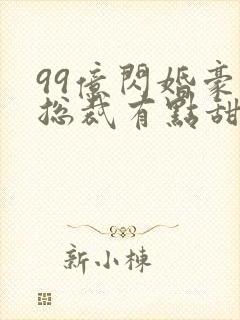 99億閃婚豪
総裁有點甜
新小棟